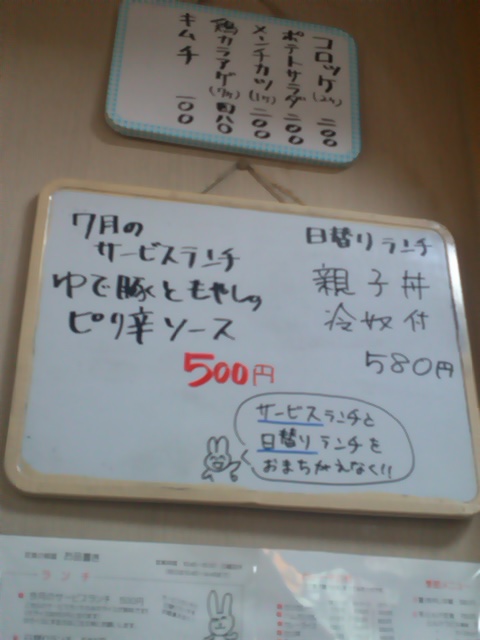 コロッケ(2ケ) 二〇〇
ポテトサラダ 二〇〇
メンチカツ(1ケ) 二〇〇
鶏カラアゲ(7ケ) 四八〇
キムチ 一〇〇
日替りランチ
親子丼
冷奴付
580円
7月の
サービスランチ
ゆで豚ともやしの
ピリ辛ソース
500円
サービスランチと
日替りランチを
おまちがえなく!!
ランチ